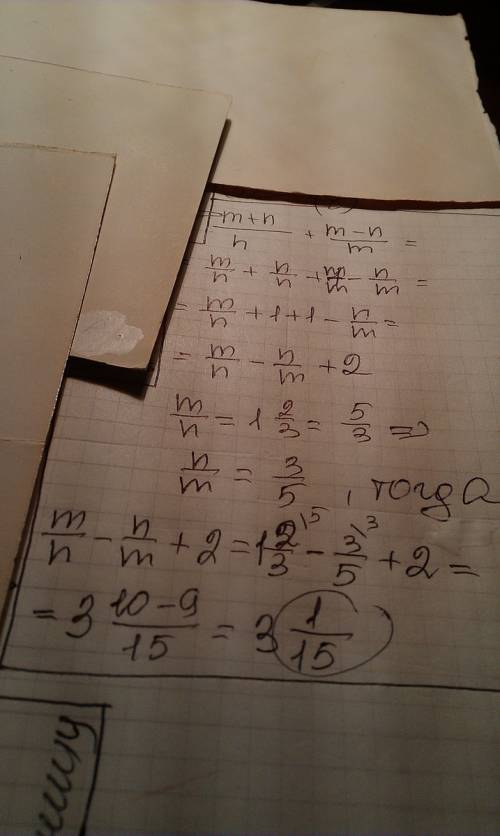 = m+n/n + m-n/m =
= m/n + n/n + m/m - n/m =
= m/n + 1 + 1 - n/m =
= m/n - n/m + 2
m/n = 1 2/3 = 5/3 =>
n/m = 3/5 , тогда
m/n - n/m + 2 = 1 2\5/3 - 3\3/5 + 2 =
= 3 10-9/15 = 3 1/15